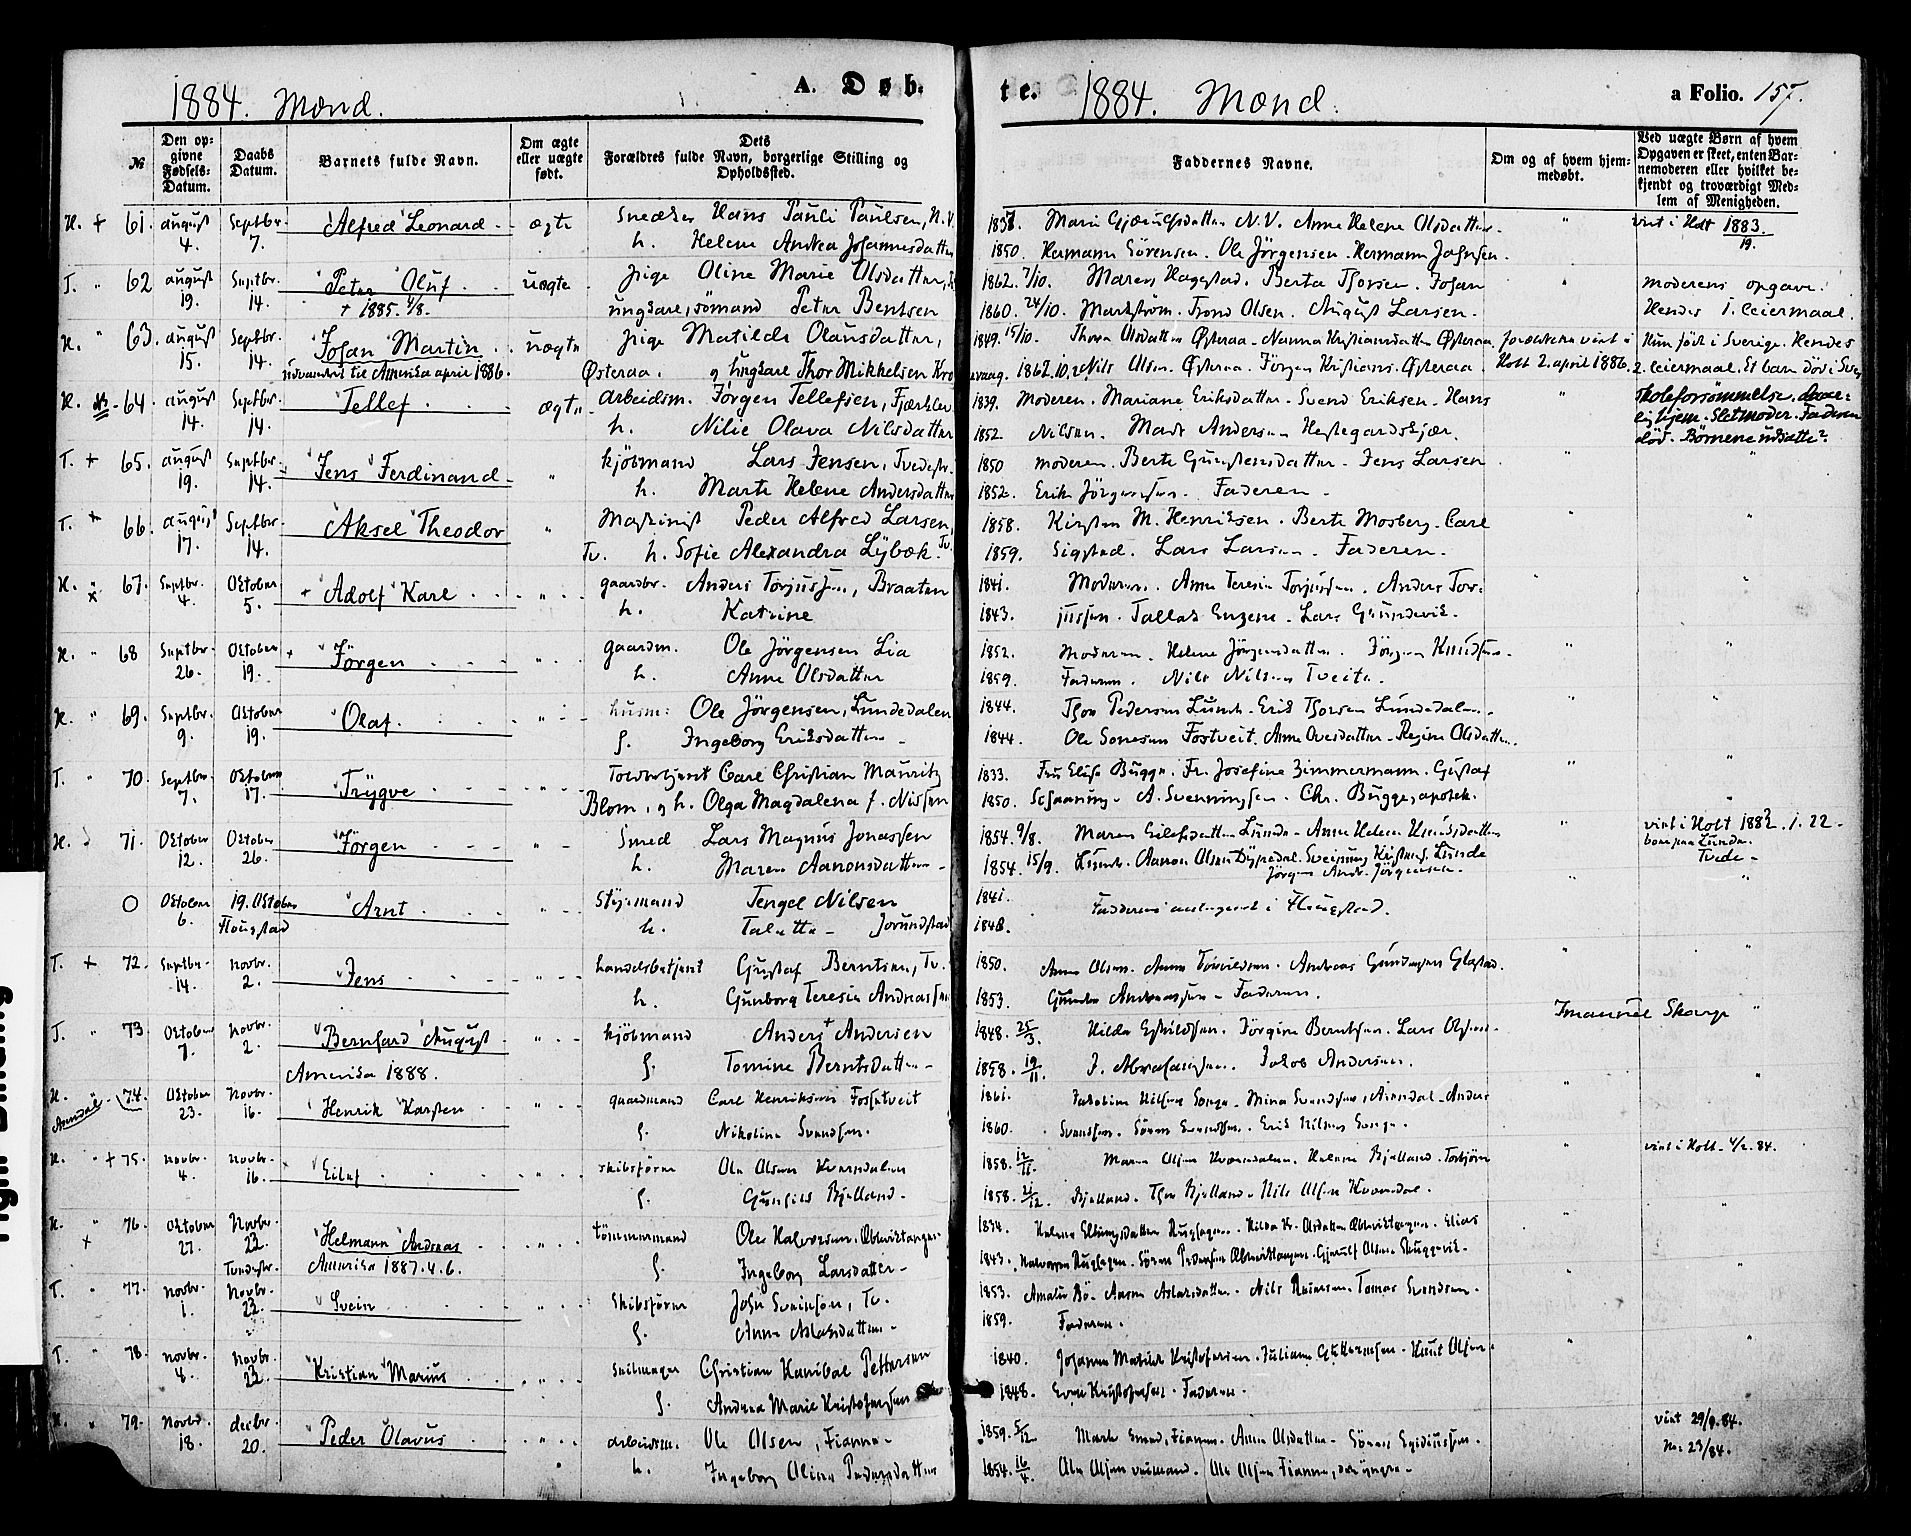 1884. Mænd.
A. Døb-
te.
1884. Mænd.
a Folio. 157.
№
Den op-
givne
Fødsels-
Datum.
Daabs
Datum.
Barnets fulde Navn.
Om ægte
eller uægte
født.
Dets
Forældres fulde Navn, borgerlige Stilling og
Opholdssted.
Faddernes Navne.
Om og af hvem hjem-
medøbt.
Ved uægte Børn af hvem
Opgaven er skeet, enten Bar-
nemoderen eller hvilket be-
kjendt og troværdigt Med-
lem af Menigheden.
H. + 61. august 4. Septbr. 7. Alfred Leonard ægte Snedker Hans Pauli Paulsen, N.V.
h. Helene Andrea Johannesdatter
Marie N.V. Anne Helene Olsdatter
1850. Hermann Sörensen. Ole Jörgensen. Hermann Johnsen.
viet i Holt 1883. 19.
T. " 62 august 19. Septbr. 14. Peter Oluf uægte pige Oline Marie Olsdatter,
+ 1885. 4/8.
ungkare, sömand Peter Bentsen
1862. 7/10. Maren Haggstad. Berta Thorsen. Johan
1860. 24/10. Markström. Trond Olsen. August Larsen.
moderens opgave.
Hendes 1. leiermaal.
H. " 63. august 15. Septbr. 14. Johan Martin uægte pige Matilde Olausdatter,
udvandret til Amerika april 1886.
Østeraa. og ungkare Thor Mikkelsen Kro
1849. 15/10. Thora Olsdatter Østeraa. Nanna Kristiansdatter Østeraa.
1862. 10. Nils Olsen. Østeraa. Jörgen Kristians. Østeraa.
forældrene viet i
Holt 2. april 1886.
Hun født i Sverige. Hendes
2. leiermaal. Et barn död i Sver
H. 64. august 14. Septbr. 14. Tellef ægte arbeidsm. Jörgen Tellefsen, Fjærkler
h. Nilie Olava Nilsdatter
1839. Moderen. Mariane Eriksdatter. Svend Eriksen. Hans
1852. Nilsen. Mads Andersen Hestegardskjær.
Skoleforsømmelse. daar-
lig hjem. Stetmoder. Faderen
död. Börnene udsatte?
T. + 65. august 19. Septbr. 14. Jens Ferdinand " kjöbmand Lars Jensen, Tvedestr.
h. Marte Helene Andersdatter
1850 moderen. Berte Gunstensdatter. Jens Larsen
1852. Erik Jörgensen. Faderen
T. + 66. august 17. Septbr. 14. Aksel Theodor " Maskinist Peder Alfred Larsen,
Tv. h. Sofie Alexandra Lybæk. Tv.
1858. Kirsten M. Henriksen. Berte Mosberg. Carl
1859. Sigstad. Lars Larsen. Faderen.
H. " 67. Septbr. 4. Oktober 5. Adolf Karl " gaardbr. Anders Torjussen, Braaten
h. Katrine
1841. Moderen. Anne Teresia Torjussen. Anders Tor-
1843. jussen. Tallak Eugene. Lars Grundevik.
H. " 68 Septbr. 26. Oktober 19. Jörgen " gaardm. Ole Jörgensen Lia
h. Anne Olsdatter
1852. Moderen. Helene Jörgensdatter. Jörgen Knudsen.
1859. Faderen. Nils Nilsen Tveite.
H. " 69. Septbr. 9. Oktober 19. Olaf. " husm: Ole Jörgensen, Lundedalen
h. Ingeborg Eriksdatter
1844. Thor Pedersen Lunde. Erik Thorsen Lundedalen.
1844. Ole Fostveit. Anne Ovesdatter. Regine Olsdatter.
T. " 70. Septbr. 7. Oktober 17. Trygve " Toldbetjent Carl Christian Mauritz
Blom, og h. Olga Magdalena f. Nissen
1833. Fru Elise Bugge. Fr. Josefine Zimmermann. Gustaf
1850. Schaaning. A. Svenningsen. Chr. Bugge, apotek.
H. 71. Oktober 12. Oktober 26. Jörgen " Smed Lars Magnus Jonassen
h. Maren Aanonsdatter
1854. 9/8. Maren Eilefsdatter Lunde. Anne Helene Knudsdatter
1854. 15/9. Lunde. Aanon Olsen Dypedal. Sveinung Kristens. Lunde
Jörgen Andr. Jörgensen.
viet i Holt 1882. 1. 22.
Lunde.
Tvede.
O Oktober 6. 19. Oktober Flougstad Arnt " Styrmand Tengel Nilsen
h. Jorundstad
1841. Fadderne antegnet i Flougstad.
1848.
T. + 72. Septbr. 14. Novbr. 2. Jens " handelsbetjent Gustaf Berntsen, Tv.
h. Gunborg Teresia Andreassen
1850. Anne Olsen. Anne Andreas Gundersen Glastad.
1853. Andreassen. Faderen.
T. " 73 Oktober 7. Novbr. 2. Bernhard August " kjöbmand Anders Andersen
Amerika 1888.
h. Tomine Berntsdatter
1848. 25/3. Hilda Eskildsen. Jörgine Berntsen. Lars Olsen.
1858. 19/11. J. Abrahamsen. Jakob Andersen.
Imanuel Skarpe "
H. Arendal 74. Oktober 23. Novbr. 16. Henrik Karsten " gaardmand Carl Henriksen Fostveit
h. Nikoline Svendsen.
1861. Jakobine Nilsen Songe. Mina Svendsen, Arendal. Anders
1860. Svendsen. Sören Svendsen. Erik Nilsen Songe.
H. " + 75. Novbr. 4. Novbr. 16. Eilef " skibsförer Ole Olsen Kvænsdalen
h. Gunhild Bjelland.
1858. 12/11. Maren Olsen Kvænsdalen. Helene Bjelland. Torbjörn
1858. 21/12. Bjelland. Thor Bjelland. Nils Olsen Kvænsdal.
viet i Holt. 4/2. 84.
H. " + 76. Oktober 27. Novbr. 23. Tvedestr. Helmann Andreas " tömmermand Ole Halvorsen.
Amerika 1887. 4. 6.
h. Ingeborg Larsdatter
1834. Helene Ellingsdatter
1843. Halvorsen Sören Pedersen Gjerulf Olsen Skuggevik.
T. " 77. Novbr. 1. Novbr. 23. Svein " Skibsförer John Sveinsen, Tv.
h. Anne Aslaksdatter
1853. Amalie Bö. Aasne Aslaksdatter. Nils Reiersen. Tomas Svendsen.
1859. Faderen.
T. " 78. Novbr. 8. Novbr. 23. Kristian Marius " Seilmager Christian Hanibal Pettersen
h. Andrea Marie Kristofersen
1840. Johanne Matilde Kristofersen. Juliane Knut Olsen.
1848. Even Kristofersen. Faderen.
H. " 79. Novbr. 18. decbr. 20. Peder Olavus " arbeidsm. Ole Olsen, Fianne
h. Ingeborg Oline Pedersdatter
1859. 5/12. Marte Fianne. Anne Olsdatter. Sören Egidiussen.
1854. 16/4. Ole Olsen Ole Olsen Fianne, den yngre.
viet 29/9. 84.
No. 23/84.